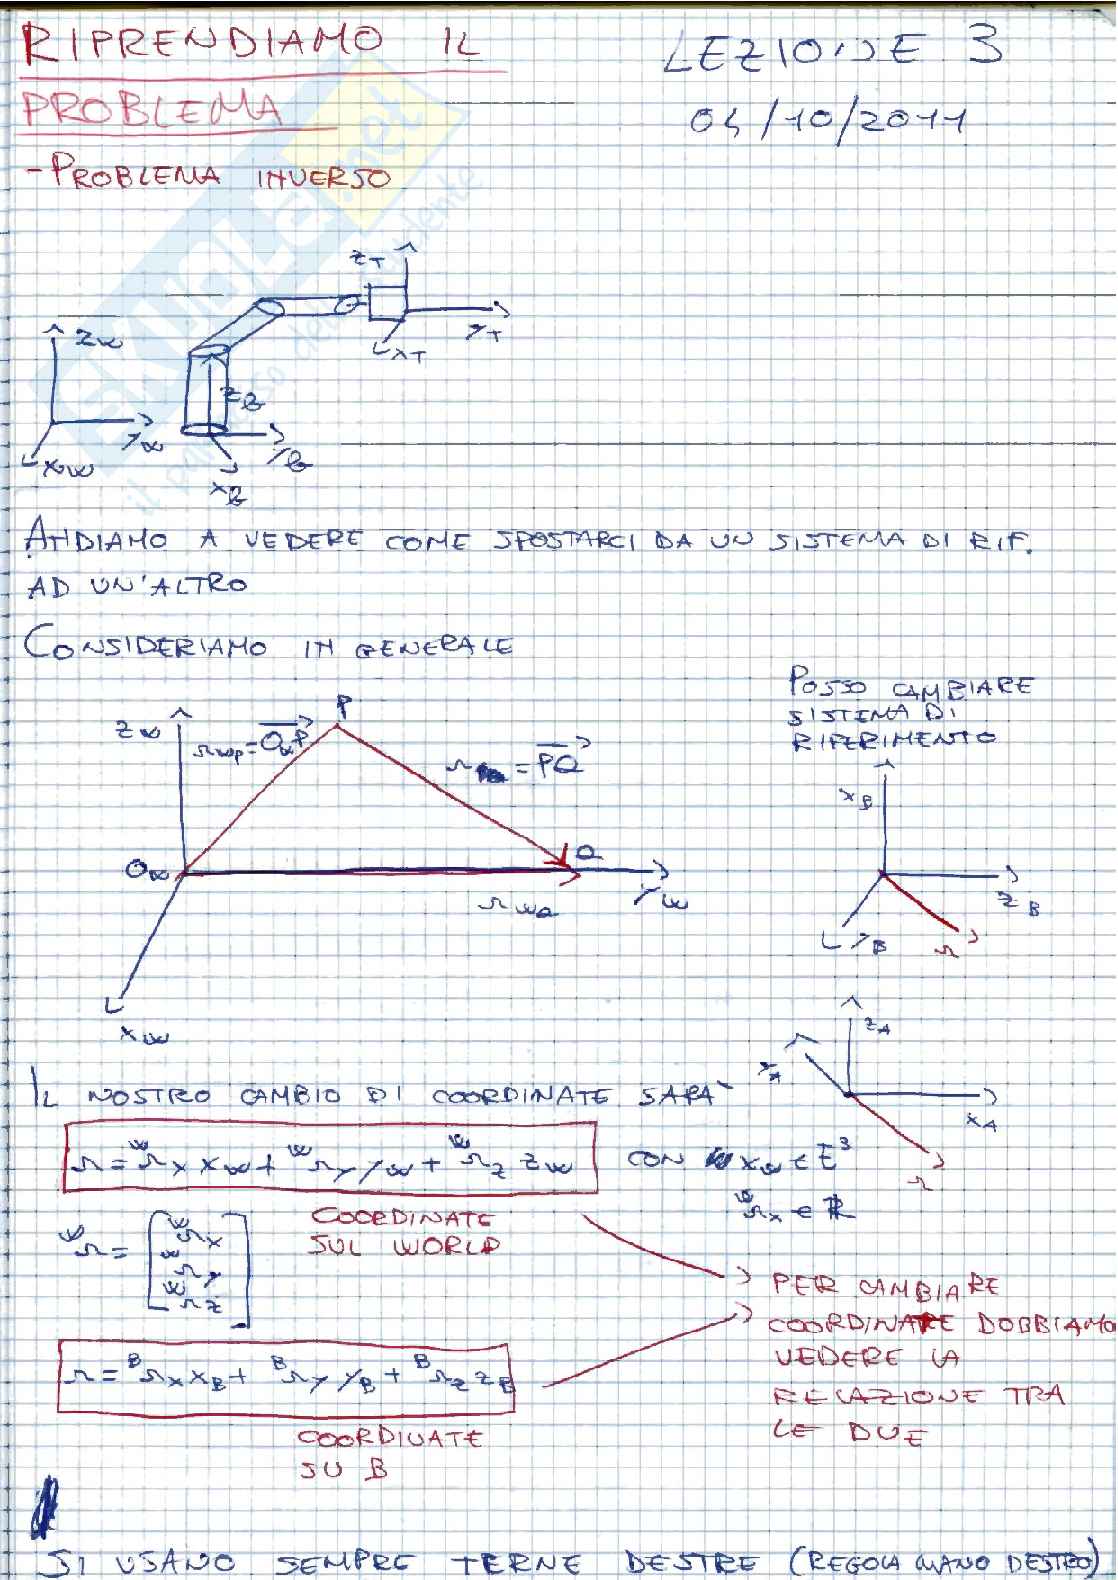 RIPRENDIAMO IL
PROBLEMA
LEZIONE 3
04/10/2011
- PROBLEMA INVERSO
SKUOLA.net
il paradiso dello studente
z_T
y_T
x_T
z_w
y_w
x_w
z_B
y_B
x_B
ANDIAMO A VEDERE COME SPOSTARCI DA UN SISTEMA DI RIF.
AD UN'ALTRO
CONSIDERIAMO IN GENERALE
POSSO CAMBIARE
SISTEMA DI
RIFERIMENTO
z_w
r_wP = O_wP
P
r = PQ
O_w
Q
y_w
r_wQ
x_w
x_B
z_B
y_B
r
z_A
y_A
x_A
r
IL NOSTRO CAMBIO DI COORDINATE SARA'
r = ^w r_x x_w + ^w r_y y_w + ^w r_z z_w CON x_w ∈ E^3
^w r_x ∈ R
COORDINATE
SUL WORLD
^w r = [^w r_x
^w r_y
^w r_z]
PER CAMBIARE
COORDINATE DOBBIAMO
VEDERE LA
RELAZIONE TRA
LE DUE
r = ^B r_x x_B + ^B r_y y_B + ^B r_z z_B
COORDINATE
SU B
SI USANO SEMPRE TERNE DESTRE (REGOLA MANO DESTRO)